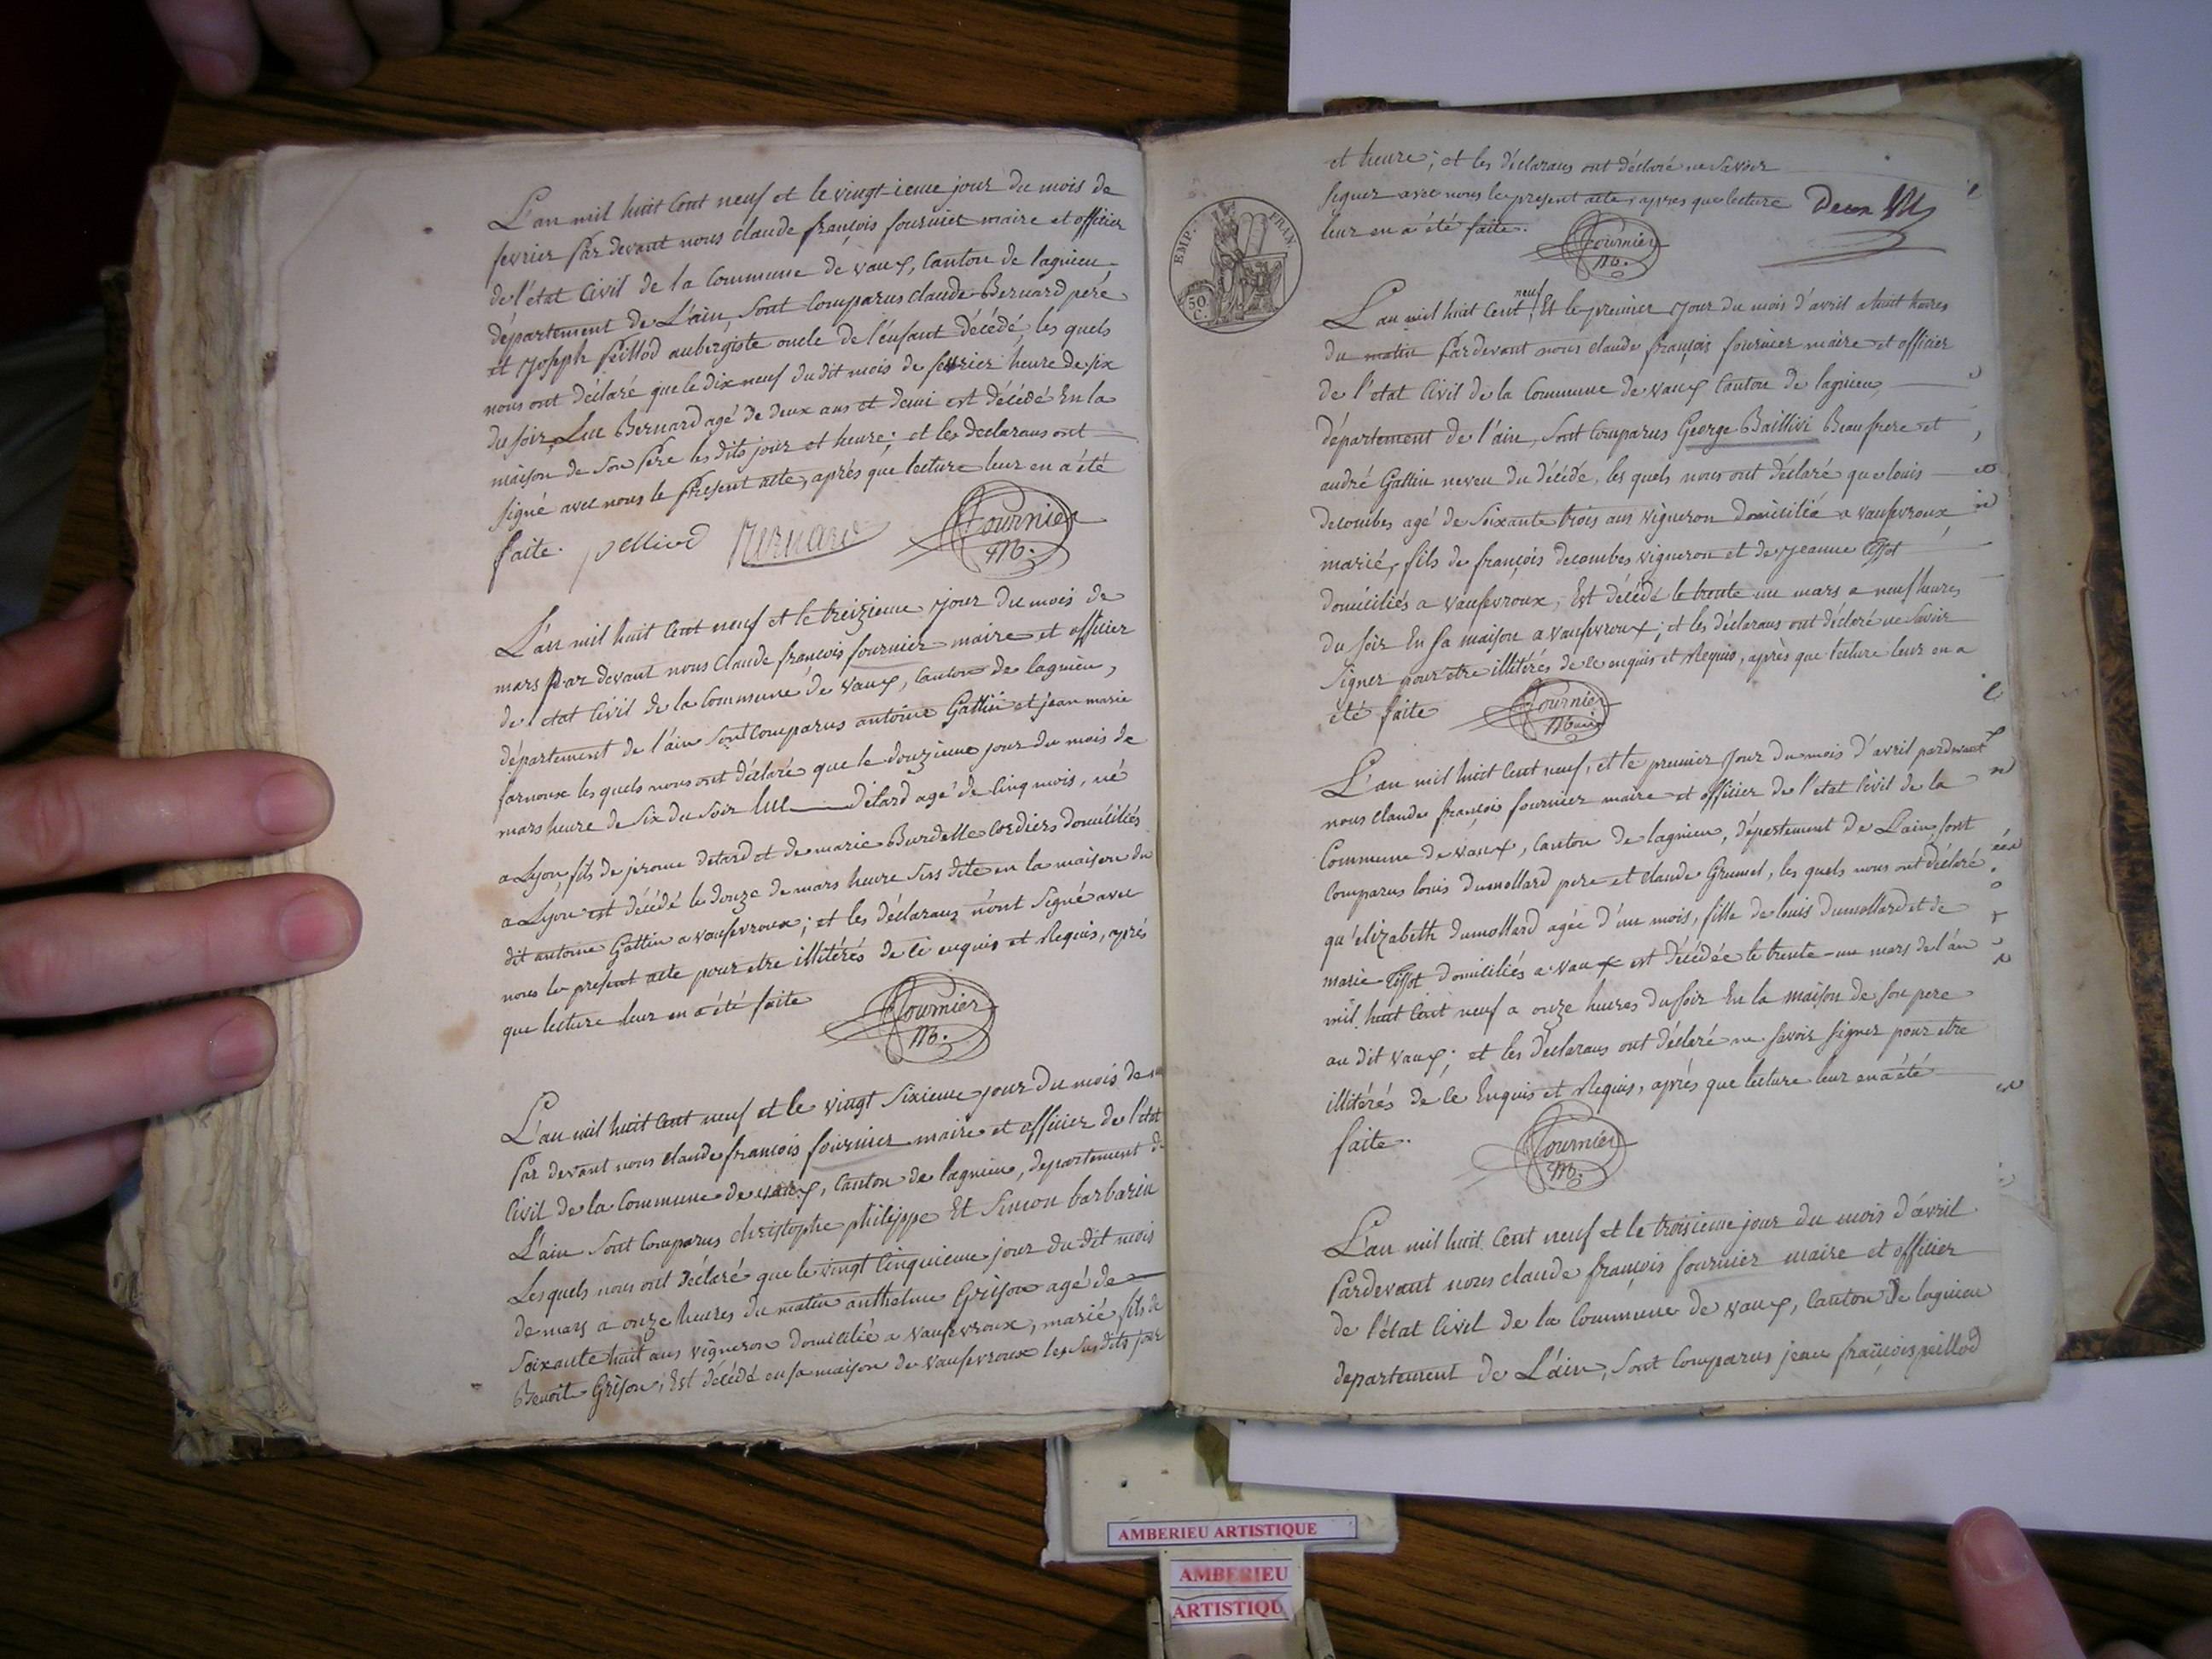 L'an mil huit cent neuf et le vingt-ieme jour du mois de
fevrier par devant nous claude françois fournier maire et officier
de l'état civil de la commune de vaux, canton de lagnieu,
département de L'ain, sont comparus claude Bernard père
et joseph peillod aubergiste oncle de l'enfant décédé, les quels
nous ont déclaré que le dix neuf du dit mois de fevrier heure de six
du soir, Luc Bernard agé de deux ans et demi est décédé En la
maison de son père les dits jour et heure; et les declarans ont
signé avec nous le present acte, après que lecture leur en a été
faite. Bernard Fournier
M.
L'an mil huit cent neuf et le treizieme jour du mois de
mars par devant nous claude françois fournier maire et officier
de l'état civil de la commune de vaux, canton de lagnieu,
département de l'ain sont comparus antoine Gattin et jean marie
farnoux les quels nous ont déclaré que le douzieme jour du mois de
mars heure de six du soir luc detard agé de cinq mois, né
a Lyon, fils de jerome detard et de marie Burdelle cordiers domiciliés
a Lyon est décédé le douze de mars heure sus dite en la maison du
dit antoine Gattin a vaufevroux; et les déclarans n'ont signé avec
nous le présent acte pour etre illitérés de ce enquis et Requis, après
que lecture leur en a été faite Fournier
M.
L'an mil huit cent neuf et le vingt sixieme jour du mois de
Par devant nous claude françois fournier maire et officier de l'état
civil de la commune de vaux, canton de lagnieu, departement de
L'ain sont comparus christophe philippe Et Simon barbarin
Lesquels nous ont déclaré que le vingt cinquieme jour du dit mois
de mars a onze heures du matin anthelme Grison agé de
soixante huit ans vigneron domicilié a vaufevroux, marié, fils de
Benoit Grison, Est décédé en sa maison de vaufevroux les sus dits jour
et heure; et les déclarans ont déclaré ne savoir
signer avec nous le present acte, apres que lecture
leur en a été faite. Fournier
M.
EMP. FRAN.
50
C.
L'an mil huit cent neuf Et le premier jour du mois d'avril a huit heures
du matin pardevant nous claude françois fournier maire et officier
de l'etat civil de la commune de vaux canton de lagnieu,
département de l'ain, sont comparus George Baillivi Beau frere et
andré Gattin neveu du décédé, les quels nous ont déclaré que louis
decombes agé de soixante trois ans vigneron domicilié a vaufevroux
marié, fils de françois decombes vigneron et de jeanne tissot
domiciliés a vaufevroux, Est décédé le trente un mars a neuf heures
du soir En sa maison a vaufevroux; et les déclarans ont déclaré ne savoir
signer pour etre illitérés de ce enquis et Requis, après que lecture leur en a
été faite Fournier
L'an mil huit cent neuf, et le premier jour du mois d'avril pardevant
nous claude françois fournier maire et officier de l'etat civil de la
Commune de vaux, canton de lagnieu, département de Lain, sont
comparus louis Dumollard pere et claude Grumel, les quels nous ont déclaré
qu'elizabeth dumollard agée d'un mois, fille de louis dumollard et de
marie tissot domiciliés a vaux est décédée le trente-un mars de l'an
mil huit cent neuf a onze heures du soir En la maison de son pere
au dit vaux; et les déclarans ont déclaré ne savoir signer pour etre
illitérés de ce Enquis et Requis, après que lecture leur en a été
faite. Fournier
M.
L'an mil huit cent neuf et le troisieme jour du mois d'avril
Pardevant nous claude françois fournier maire et officier
de l'état civil de la commune de vaux, canton de lagnieu
departement de L'ain, sont comparus jean françois peillod
AMBERIEU ARTISTIQUE
AMBERIEU
ARTISTIQU